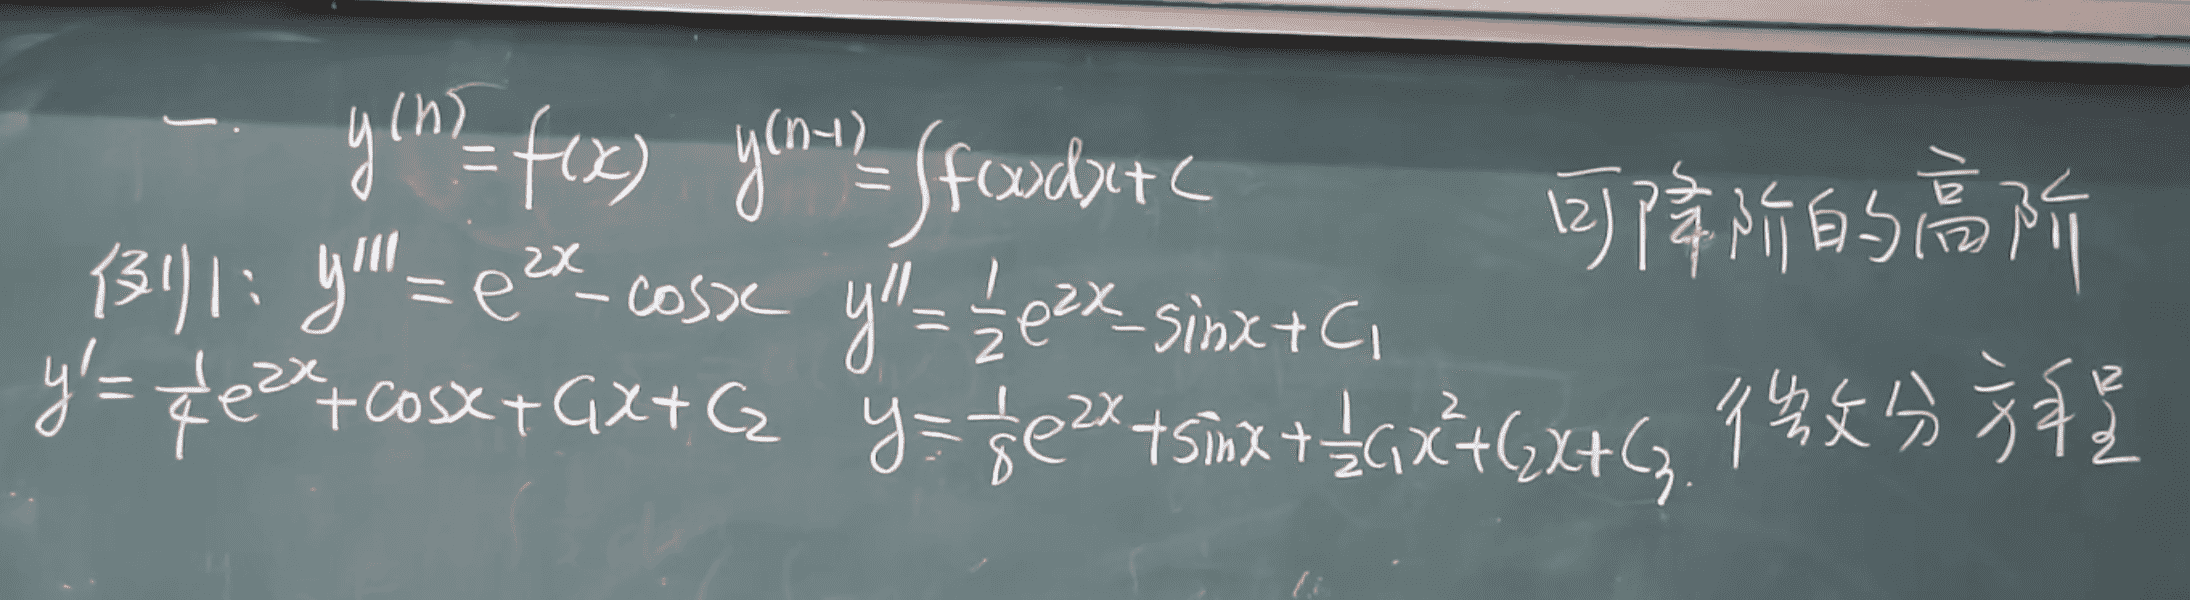 一. y⁽ⁿ⁾=f(x) y⁽ⁿ⁻¹⁾=∫f(x)dx+C
例1: y'''=e²ˣ-cosx y''=½e²ˣ-sinx+C₁
y'=¼e²ˣ+cosx+C₁x+C₂ y=⅛e²ˣ+sinx+½C₁x²+C₂x+C₃.
可降阶的高阶
微分方程